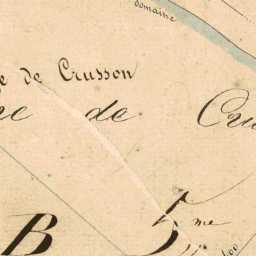 domaine
de Crusson
de Cru
B 5me